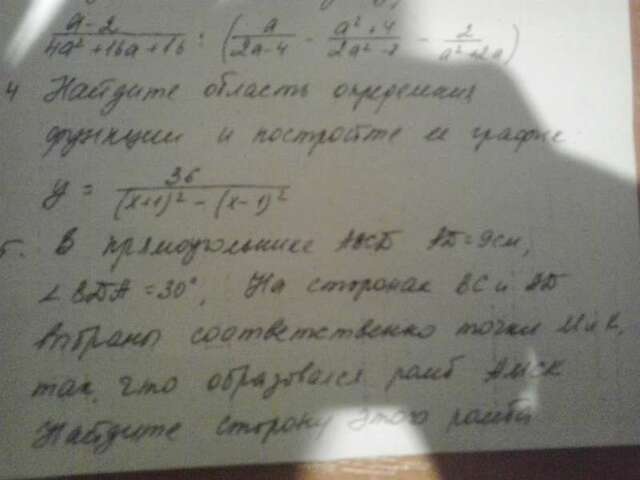 a-2 / 4a² + 16a + 16 : ( a / 2a-4 - a² + 4 / 2a² - 8 - 2 / a² + 2a )
4 Найдите область определения
функции и постройте ее график
y = 36 / (x+1)² - (x-1)²
5. В прямоугольнике ABCD AD = 9см,
∠ BDA = 30°. На сторонах BC и AD
выбраны соответственно точки М и К,
так, что образовался ромб AMCK
Найдите сторону этого ромба